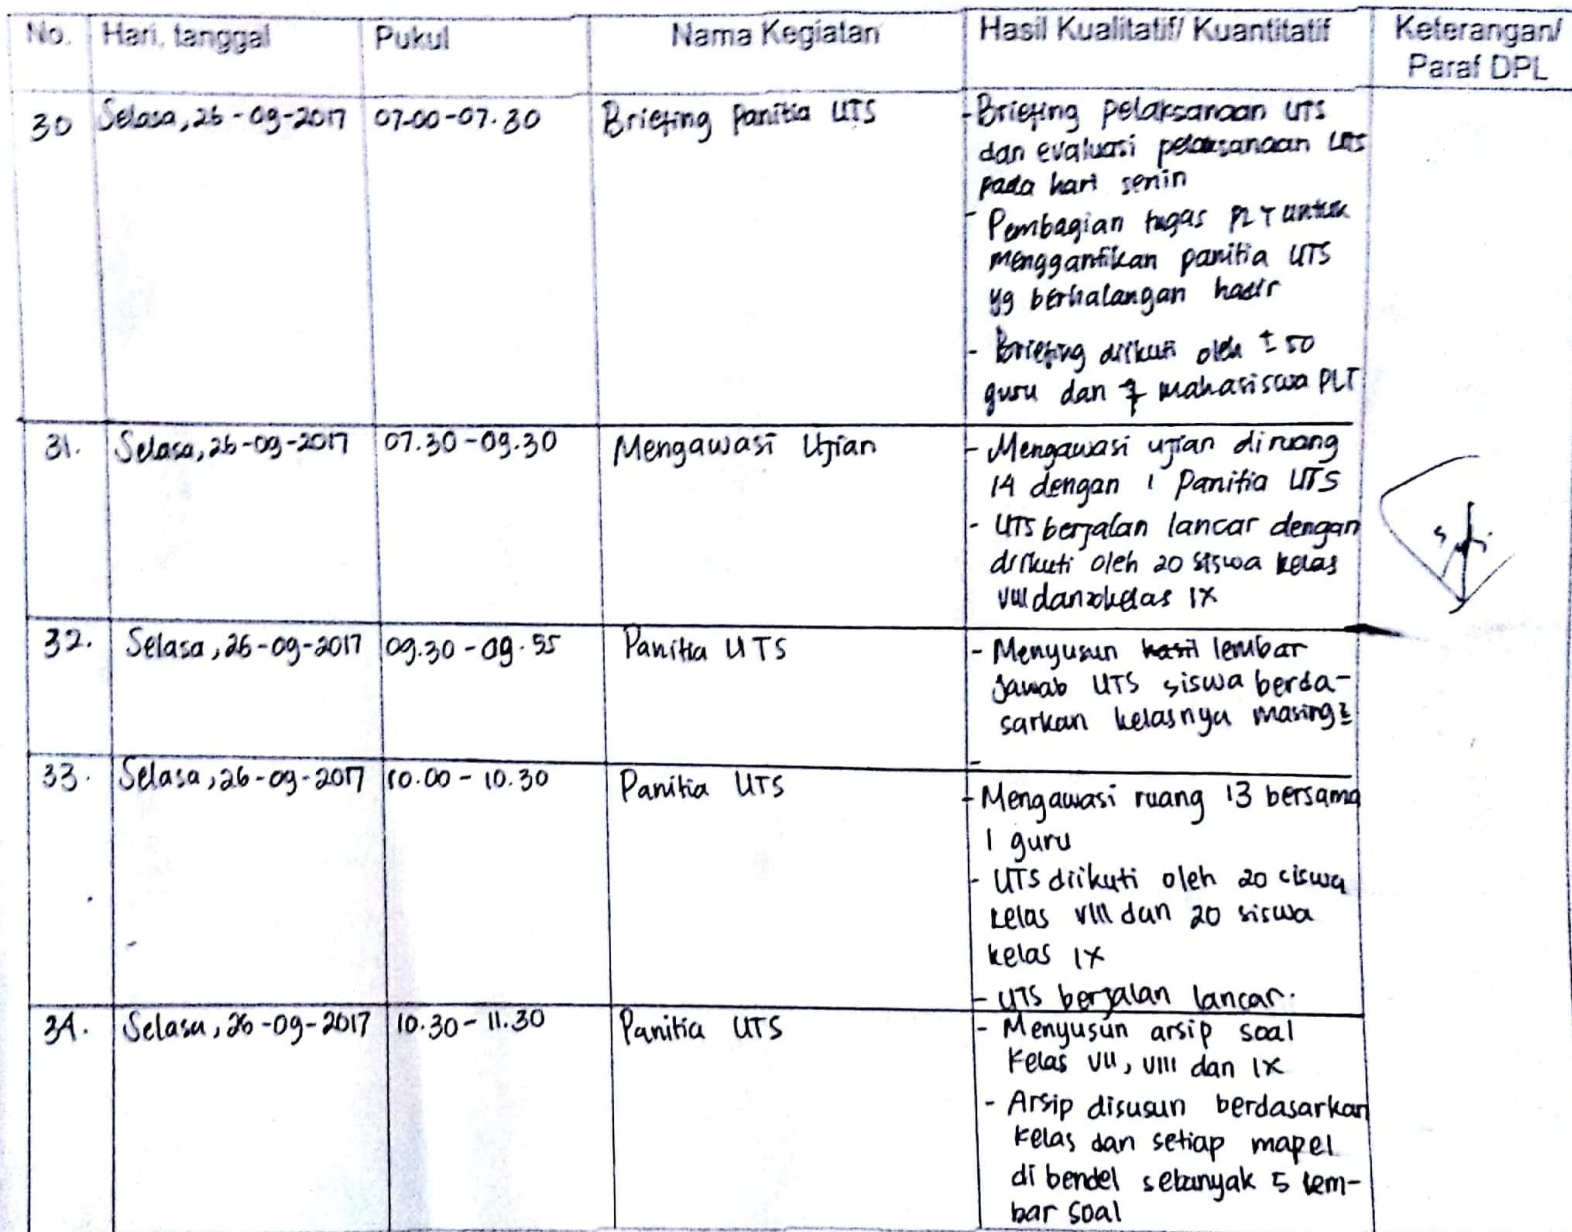 No. Hari, tanggal Pukul Nama Kegiatan Hasil Kualitatif/ Kuantitatif Keterangan/
Paraf DPL
30 Selasa, 26-09-2017 07.00-07.30 Briefing Panitia UTS - Briefing pelaksanaan UTS
dan evaluasi pelaksanaan UTS
pada hari senin
- Pembagian tugas PLT untuk
menggantikan panitia UTS
yg berhalangan hadir
- Briefing diikuti oleh ± 50
guru dan 7 mahasiswa PLT
31. Selasa, 26-09-2017 07.30-09.30 Mengawasi Ujian - Mengawasi ujian diruang
14 dengan 1 Panitia UTS
- UTS berjalan lancar dengan
diikuti oleh 20 siswa kelas
VIII dan 20 kelas IX
32. Selasa, 26-09-2017 09.30-09.55 Panitia UTS - Menyusun hasil lembar
jawab UTS siswa berda-
sarkan kelasnya masing2
-
33. Selasa, 26-09-2017 10.00-10.30 Panitia UTS - Mengawasi ruang 13 bersama
1 guru
- UTS diikuti oleh 20 siswa
kelas VIII dan 20 siswa
kelas IX
- UTS berjalan lancar.
34. Selasa, 26-09-2017 10.30-11.30 Panitia UTS - Menyusun arsip soal
kelas VII, VIII dan IX
- Arsip disusun berdasarkan
kelas dan setiap mapel
di bendel sebanyak 5 lem-
bar soal